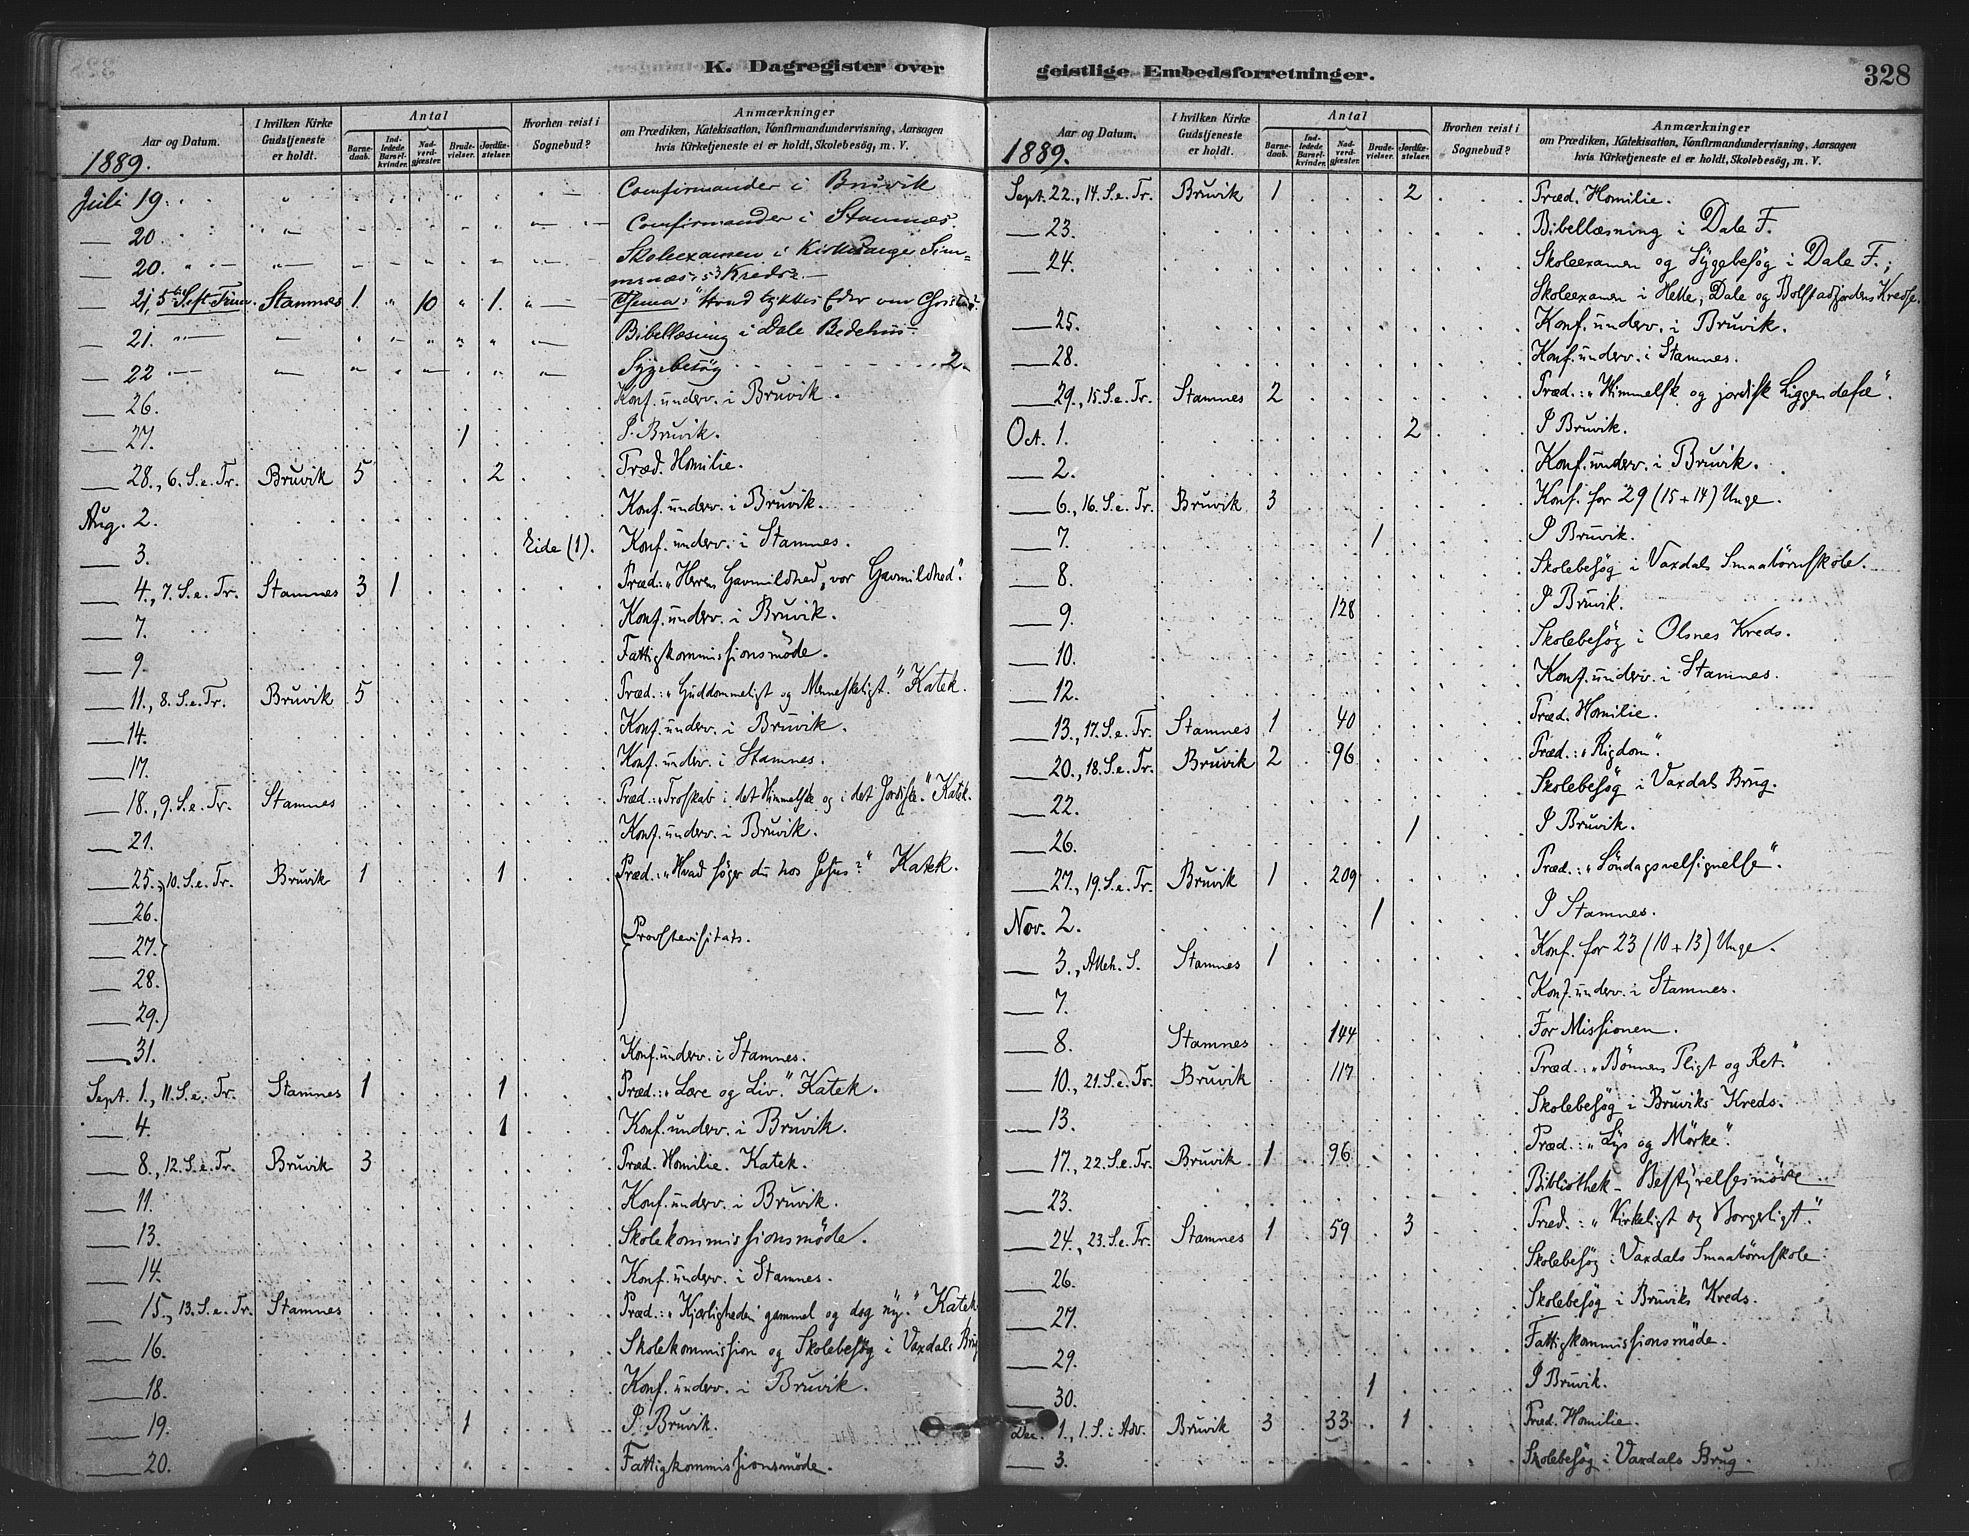 K. Dagregister over
Aar og Datum.
I hvilken Kirke Gudstjeneste er holdt.
Antal
Barnedaab.
Indledede Barselkvinder.
Nadverdgjæster.
Brudevielser.
Jordfæstelser.
Hvorhen reist i Sognebud?
Anmærkninger
om Prædiken, Katekisation, Konfirmandundervisning, Aarsagen
hvis Kirketjeneste ei er holdt, Skolebesøg, m. V.
1889.
Juli 19. Comfirmander i Bruvik
— 20. Comfirmander i Stamnes.
— 20. Skoleexamen i
Kreds
— 21, 5te S. eft. Trin. Stamnes 1. 10 1. Thema: "Hvad tykkes Eder om Christus?
— 21. Bibellæsning i Dale Bedehus
— 22 Sygebesøg 2.
— 26. Konf. underv. i Bruvik.
— 27. 1 I Bruvik.
— 28., 6. S. e. Tr. Bruvik 5 2 Præd. Homilie.
Aug. 2. Konf. underv. i Bruvik.
— 3. Eide (1). Konf. underv. i Stamnes.
— 4., 7. S. e. Tr. Stamnes 3 1 Præd.: „Herrens Gavmildhed, vor Gavmildhed".
— 7. Konf. underv. i Bruvik.
— 9. Fattigkommissionsmøde.
— 11., 8. S. e. Tr. Bruvik 5 Præd.: „Guddommeligt og Menneskeligt." Katek.
— 14. Konf. underv. i Bruvik.
— 17. Konf. underv. i Stamnes.
— 18., 9. S. e. Tr. Stamnes Præd.: „Troskab i det Himmelske og i det Jordiske." Katek.
— 21. Konf. underv. i Bruvik.
— 25., 10. S. e. Tr. Bruvik 1 1 Præd.: „Hvad søger du hos Jesus?" Katek.
— 26.
— 27. Provstevisitats.
— 28.
— 29.
— 31. Konf. underv. i Stamnes.
Sept. 1., 11. S. e. Tr. Stamnes 1 1 Præd.: „Lære og Liv." Katek.
— 4. 1 Konf. underv. i Bruvik.
— 8., 12. S. e. Tr. Bruvik 3 Præd. Homilie. Katek.
— 11. Konf. underv. i Bruvik.
— 13. Skolekommissionsmøde.
— 14. Konf. underv. i Stamnes.
— 15., 13. S. e. Tr. Stamnes Præd.: „Kjærligheden gammel og dog ny." Katek
— 16. Skolekommission og Skolebesøg i Vaxdals Brug
— 18. Konf. underv. i Bruvik.
— 19. 1 I Bruvik.
— 20. Fattigkommissionsmøde.
geistlige Embedsforretninger.
328
Aar og Datum.
I hvilken Kirke Gudstjeneste er holdt.
Antal
Barnedaab.
Indledede Barselkvinder.
Nadverdgjæster.
Brudevielser.
Jordfæstelser.
Hvorhen reist i Sognebud?
Anmærkninger
om Prædiken, Katekisation, Konfirmandundervisning, Aarsagen
hvis Kirketjeneste ei er holdt, Skolebesøg, m. V.
1889.
Sept. 22., 14. S. e. Tr. Bruvik 1 2 Præd. Homilie.
— 23. Bibellæsning i Dale F.
— 24. Skoleexamen og Sygebesøg i Dale F.;
Skoleexamen i Helle, Dale og Bolstadfjordens Kredse.
— 25. Konf. underv. i Bruvik.
— 28. Konf. underv. i Stamnes.
— 29., 15. S. e. Tr. Stamnes 2 Præd.: „Himmelsk og jordisk Liggendefæ".
Oct. 1. 2 I Bruvik.
— 2. Konf. underv. i Bruvik.
— 6., 16. S. e. Tr. Bruvik 3 Konf. for 29 (15 + 14) Unge.
— 7. 1 I Bruvik.
— 8. Skolebesøg i Vaxdals Smaabørnskole.
— 9. 128 I Bruvik.
— 10. Skolebesøg i Olsnes Kreds.
— 12. Konf. underv. i Stamnes.
— 13., 17. S. e. Tr. Stamnes 1 40 Præd. Homilie.
— 20., 18. S. e. Tr. Bruvik 2 96 Præd.: „Rigdom".
— 22. Skolebesøg i Vaxdals Brug.
— 26. 1 I Bruvik.
— 27., 19. S. e. Tr. Bruvik 1 209 Præd.: „Søndagsvelsignelse".
Nov. 2. 1 I Stamnes.
— 3., Alleh. S. Stamnes 1 Konf. for 23 (10 + 13) Unge.
— 7. Konf. underv. i Stamnes.
— 8. Stamnes 144 For Missionen.
— 10., 21. S. e. Tr. Bruvik 117 Præd.: „Bønnens Pligt og Ret."
— 13. Skolebesøg i Bruviks Kreds.
— 17., 22. S. e. Tr. Bruvik 1 96 Præd.: „Lys og Mørke".
— 23. Bibliothek-Bestyrelsesmøde
— 24., 23. S. e. Tr. Stamnes 1 59 3 Præd.: „Kirkeligt og Borgerligt."
— 26. Skolebesøg i Vaxdals Smaabørnskole.
— 27. Skolebesøg i Bruviks Kreds.
— 29. Fattigkommissionsmøde.
— 30. 1 I Bruvik.
Dec. 1., 1. S. i Adv. Bruvik 3 33 1 Præd. Homilie.
— 3. Skolebesøg i Vaxdals Brug.